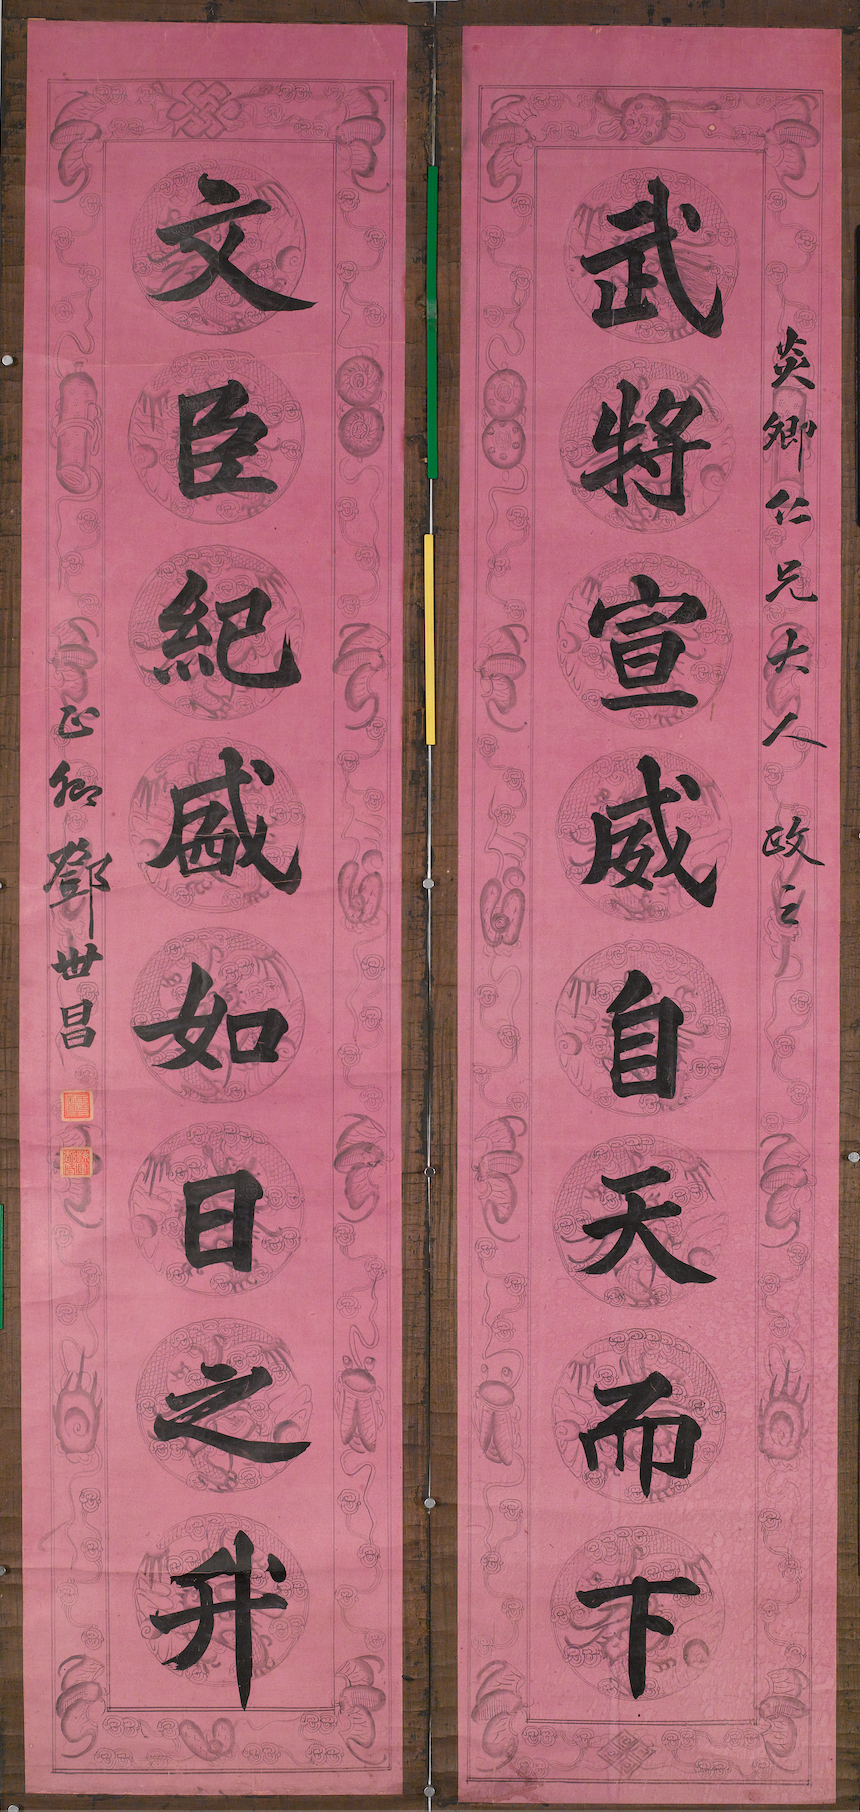 炎卿仁兄大人 政之
武將宣威自天而下
文臣紀盛如日之升
正卿鄧世昌